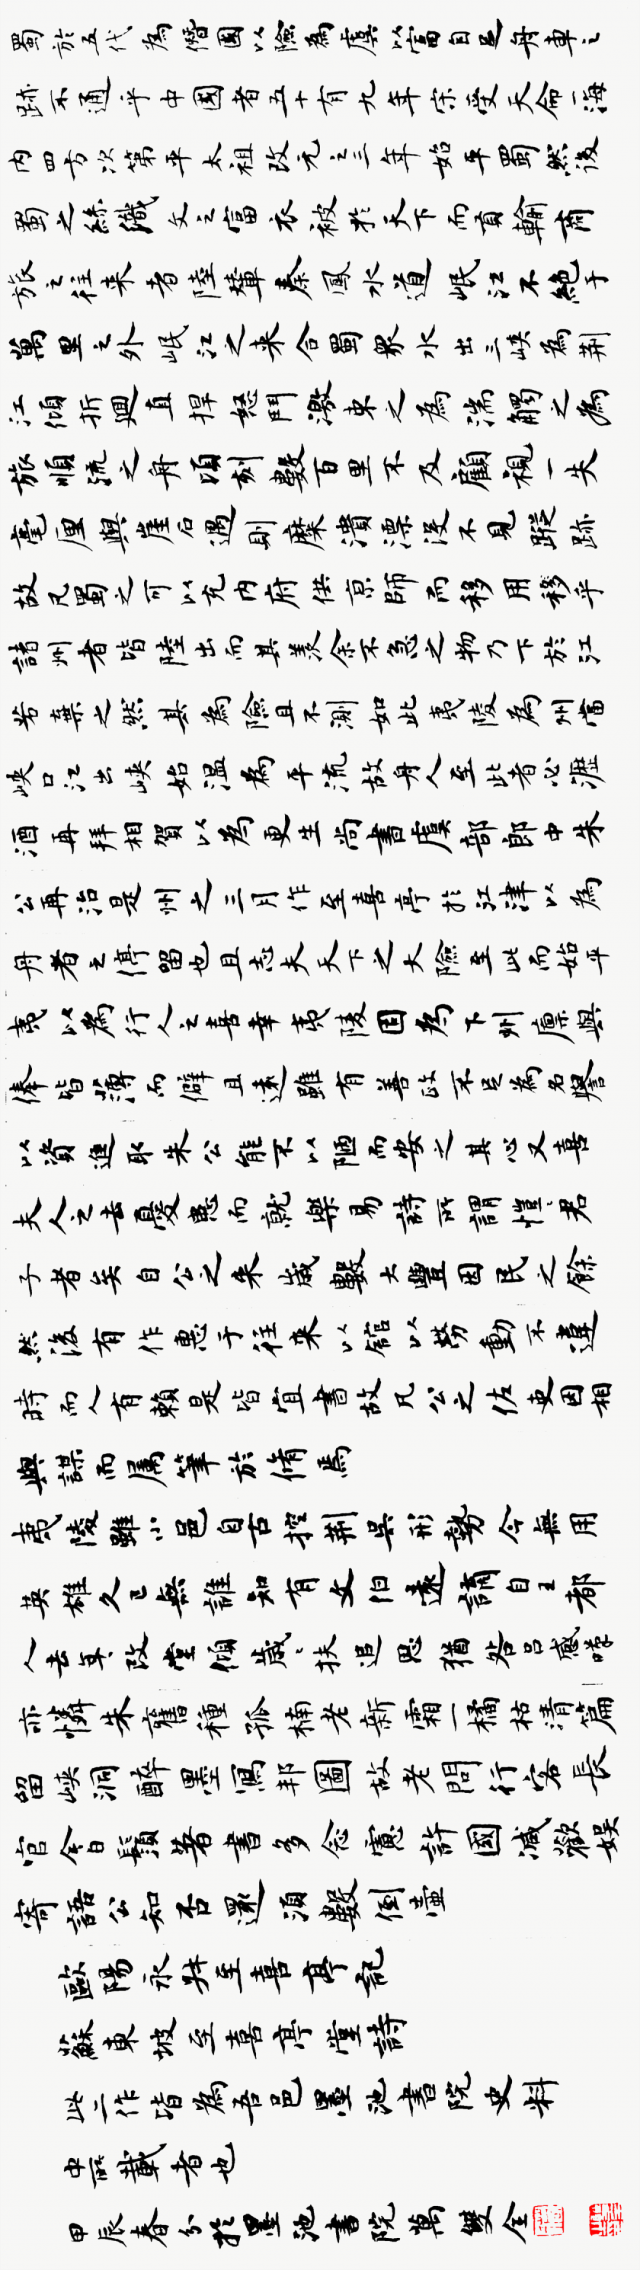 蜀於五代為僭國以險為虞以富自足舟車之
跡不通乎中國者五十有九年宋受天命一海
內四方次第平太祖改元之三年始平蜀然後
蜀之絲織文之富衣被於天下而貢輸商
旅之往来者陸輦秦鳳水道岷江不絕于
萬里之外岷江之来合蜀眾水出三峽為荆
江傾折迴直捍怒鬥激束之為湍觸之為
旋順流之舟頃刻數百里不及顧視一失
毫厘與崖石遇則糜潰漂沒不見蹤跡
故凡蜀之可以充內府供京師而移用移乎
諸州者皆陸出而其羡余不急之物乃下於江
若棄之然其為險且不測如此夷陵為州當
峽口江出峽始溫為平流故舟人至此者必瀝
酒再拜相賀以為更生尚書虞部郎中朱
公再治是州之三月作至喜亭於江津以為
舟者之停留也且志夫天下之大險至此而始平
夷以為行人之喜幸夷陵固為下州廪與
俸皆薄而僻且遠雖有善政不足為名譽
以資進取朱公能不以陋而安之其心又喜
夫人之去憂患而就樂易詩所謂愷悌君
子者矣自公之来歲數大豐因民之餘
然後有作惠于往来以館以勞動不違
時而人有賴是皆宜書故凡公之佐吏因相
與謀而属筆於脩焉
夷陵雖小邑自古控荆吴形勢今無用
英雄久已無誰知有文伯遠謫自王都
人去年改堂傾歲歲扶追思猶咎吕感嘆
亦憐朱舊種孤楠老新霜一橘枯清篇
留峽洞醉墨寫邦圖故老問行客長
官今白鬚著書多念慮許國减歡娱
寄語公知否還須數倒壺
歐陽永叔至喜亭記
蘇東坡至喜亭堂詩
此二作皆為吾邑墨池書院史料
中所載者也
甲辰春分於墨池書院萬雙全